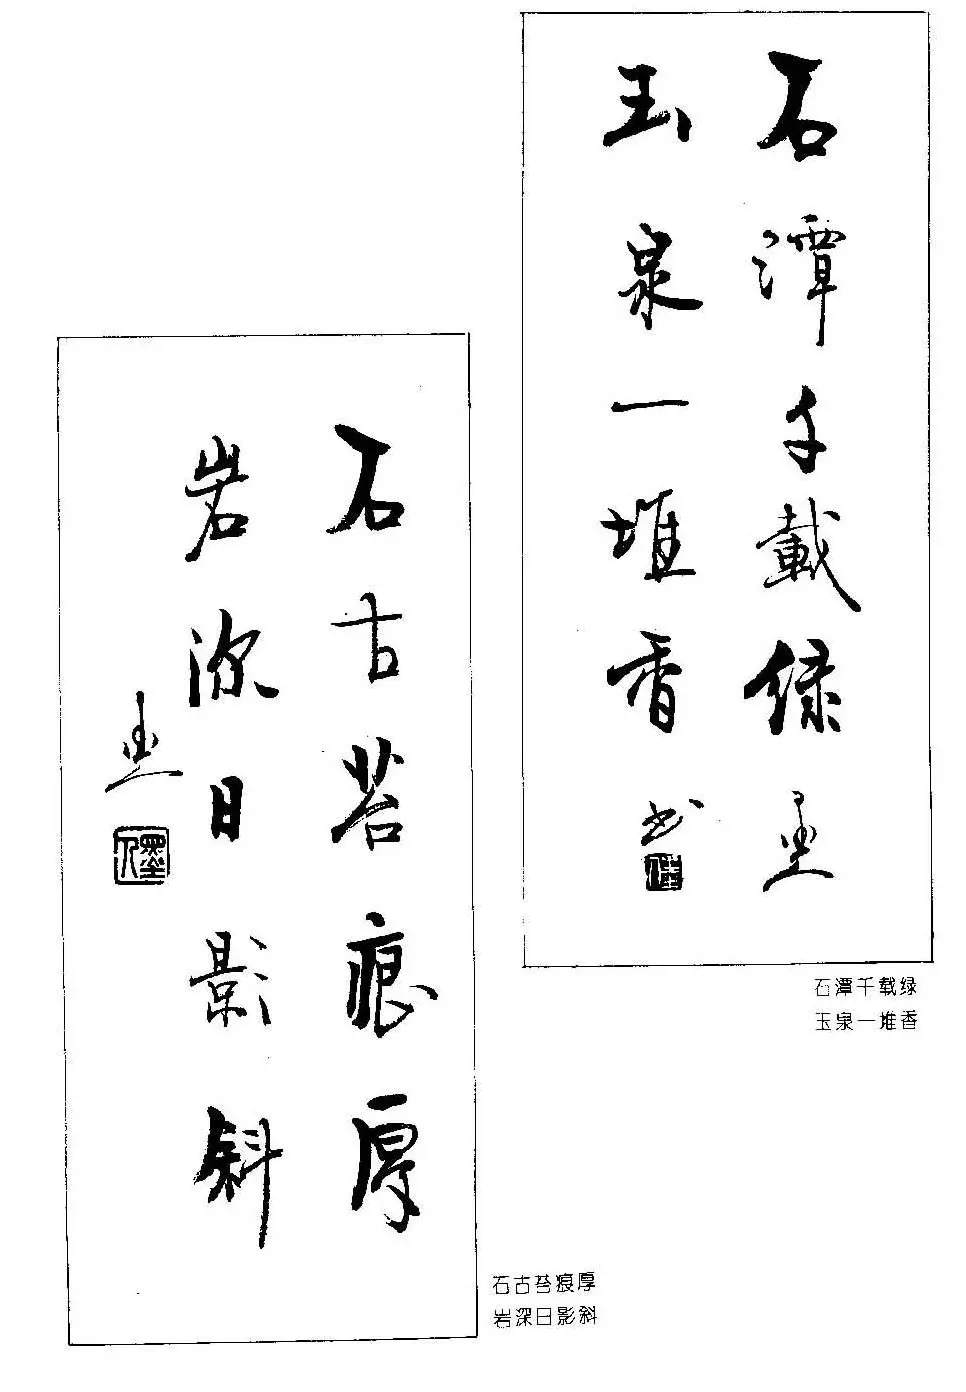 石潭千載绿
玉泉一堆香
书
石潭千载绿
玉泉一堆香
石古苔痕厚
岩深日影斜
石古苔痕厚
岩深日影斜